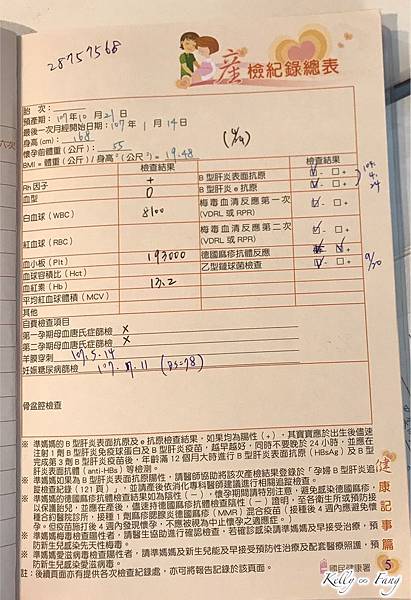 28757568
產檢紀錄總表
胎 次：
預產期：107年10月21日
最後一次月經開始日期：107年1月14日
身高(cm)：168
懷孕前體重(公斤)：55
BMI = 體重(公斤)/身高²(公尺²)= 19.48
檢查結果 檢查結果
Rh 因子 + B 型肝炎表面抗原 ☑ - □ +
血型 O B 型肝炎 e 抗原 ☑ - □ +
白血球(WBC) 8100 梅毒血清反應第一次(VDRL 或 RPR) ☑ - □ +
紅血球(RBC) 梅毒血清反應第二次(VDRL 或 RPR) ☑ - □ +
血小板(Plt) 193000 德國麻疹抗體反應
血球容積比(Hct) 乙型鏈球菌檢查 ☑ - □ +
血紅素(Hb) 13.2
平均紅血球體積(MCV)
其他
自費檢查項目
第一孕期母血唐氏症篩檢 X
第二孕期母血唐氏症篩檢 X
羊膜穿刺 107.5.14
妊娠糖尿病篩檢 107.7.11
骨盆腔檢查
※ 準媽媽的 B 型肝炎表面抗原及 e 抗原檢查結果，如果均為陽性(+)，其寶寶應於出生後儘速
注射 1 劑 B 型肝炎免疫球蛋白及 B 型肝炎疫苗，越早越好，同時不要晚於 24 小時，並應在
完成第 3 劑 B 型肝炎疫苗後，年齡滿 12 個月大時進行 B 型肝炎表面抗原(HBsAg)及 B 型
肝炎表面抗體(anti-HBs)等檢測。
※ 準媽媽如果為 B 型肝炎表面抗原陽性，請醫師協助將該次產檢結果登錄於「孕婦 B 型肝炎追
蹤檢查紀錄(121 頁)」，並請產後依消化專科醫師建議進行相關追蹤檢查。
※ 準媽媽的德國麻疹抗體檢查結果如為陰性(－)，懷孕期間請特別注意，避免感染德國麻疹，
以保護胎兒，並應在產後，儘速持德國麻疹抗體檢查陰性(－)證明，至各衛生所或預防接
種合約醫院診所，接種 1 劑麻疹腮腺炎德國麻疹(MMR)混合疫苗(接種後 4 週內應避免懷
孕。但疫苗施打後 4 週內發現懷孕，不應被視為中止懷孕之適應症。)
※ 準媽媽梅毒檢查陽性者，請醫生協助進行確認檢查，若確診感染請準媽媽及早接受治療，預
防新生兒感染先天性梅毒。
※ 準媽媽愛滋病毒檢查陽性者，請準媽媽及新生兒能及早接受預防性治療及配套醫療照護，預
防新生兒感染愛滋病毒。
註：後續頁面亦有提供各次檢查紀錄處，亦可將報告紀錄於該頁面。
健康記事篇
5
國民健康署
Kelly Fang